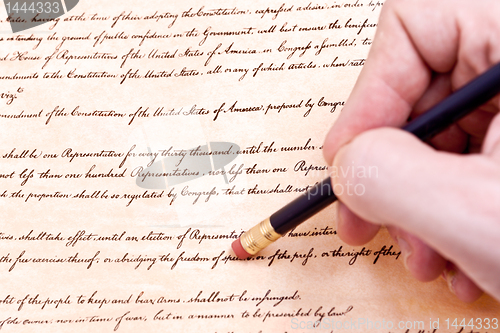 States, having at the time of their adopting the Constitution, expressed a desire, in order to
extending the ground of public confidence in the Government, will best insure the beneficent
House of Representatives of the United States of America, in Congress assembled, two
amendments to the Constitution of the United States, all, or any of which articles, when rati
viz.
mendment of the Constitution of the United States of America, proposed by Congre
shall be one Representative for every thirty thousand, until the number
not less than one hundred Representatives, nor less than one Repres
the proportion shall be so regulated by Congress, that there shall not
ves, shall take effect, until an election of Representat have inter
the free exercise thereof; or abridging the freedom of spee or of the press, or the right of the
right of the people to keep and bear Arms, shall not be infringed.
of the owner, nor in time of war, but in a manner to be prescribed by law.
© hannamonika
#1444733